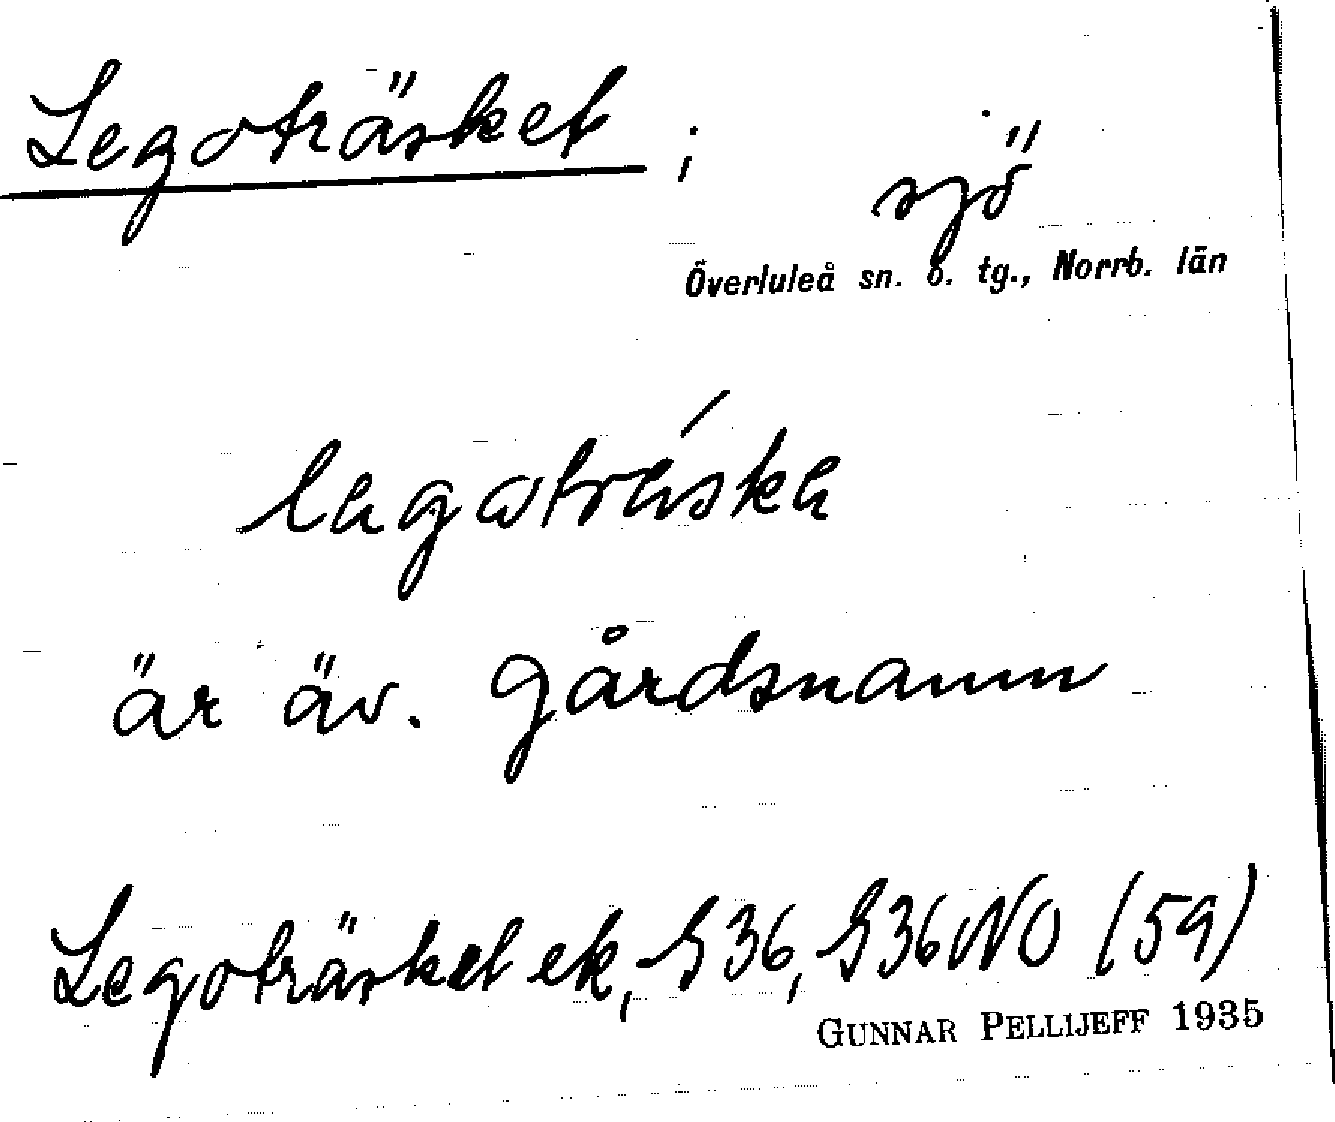 Legoträsket ; sjö
Överluleå sn. o. tg., Norrb. län
lagotráska
är äv. gårdsnamn
Legoträsket ek, S 36, S 36 NO (59)
GUNNAR PELLIJEFF 1935